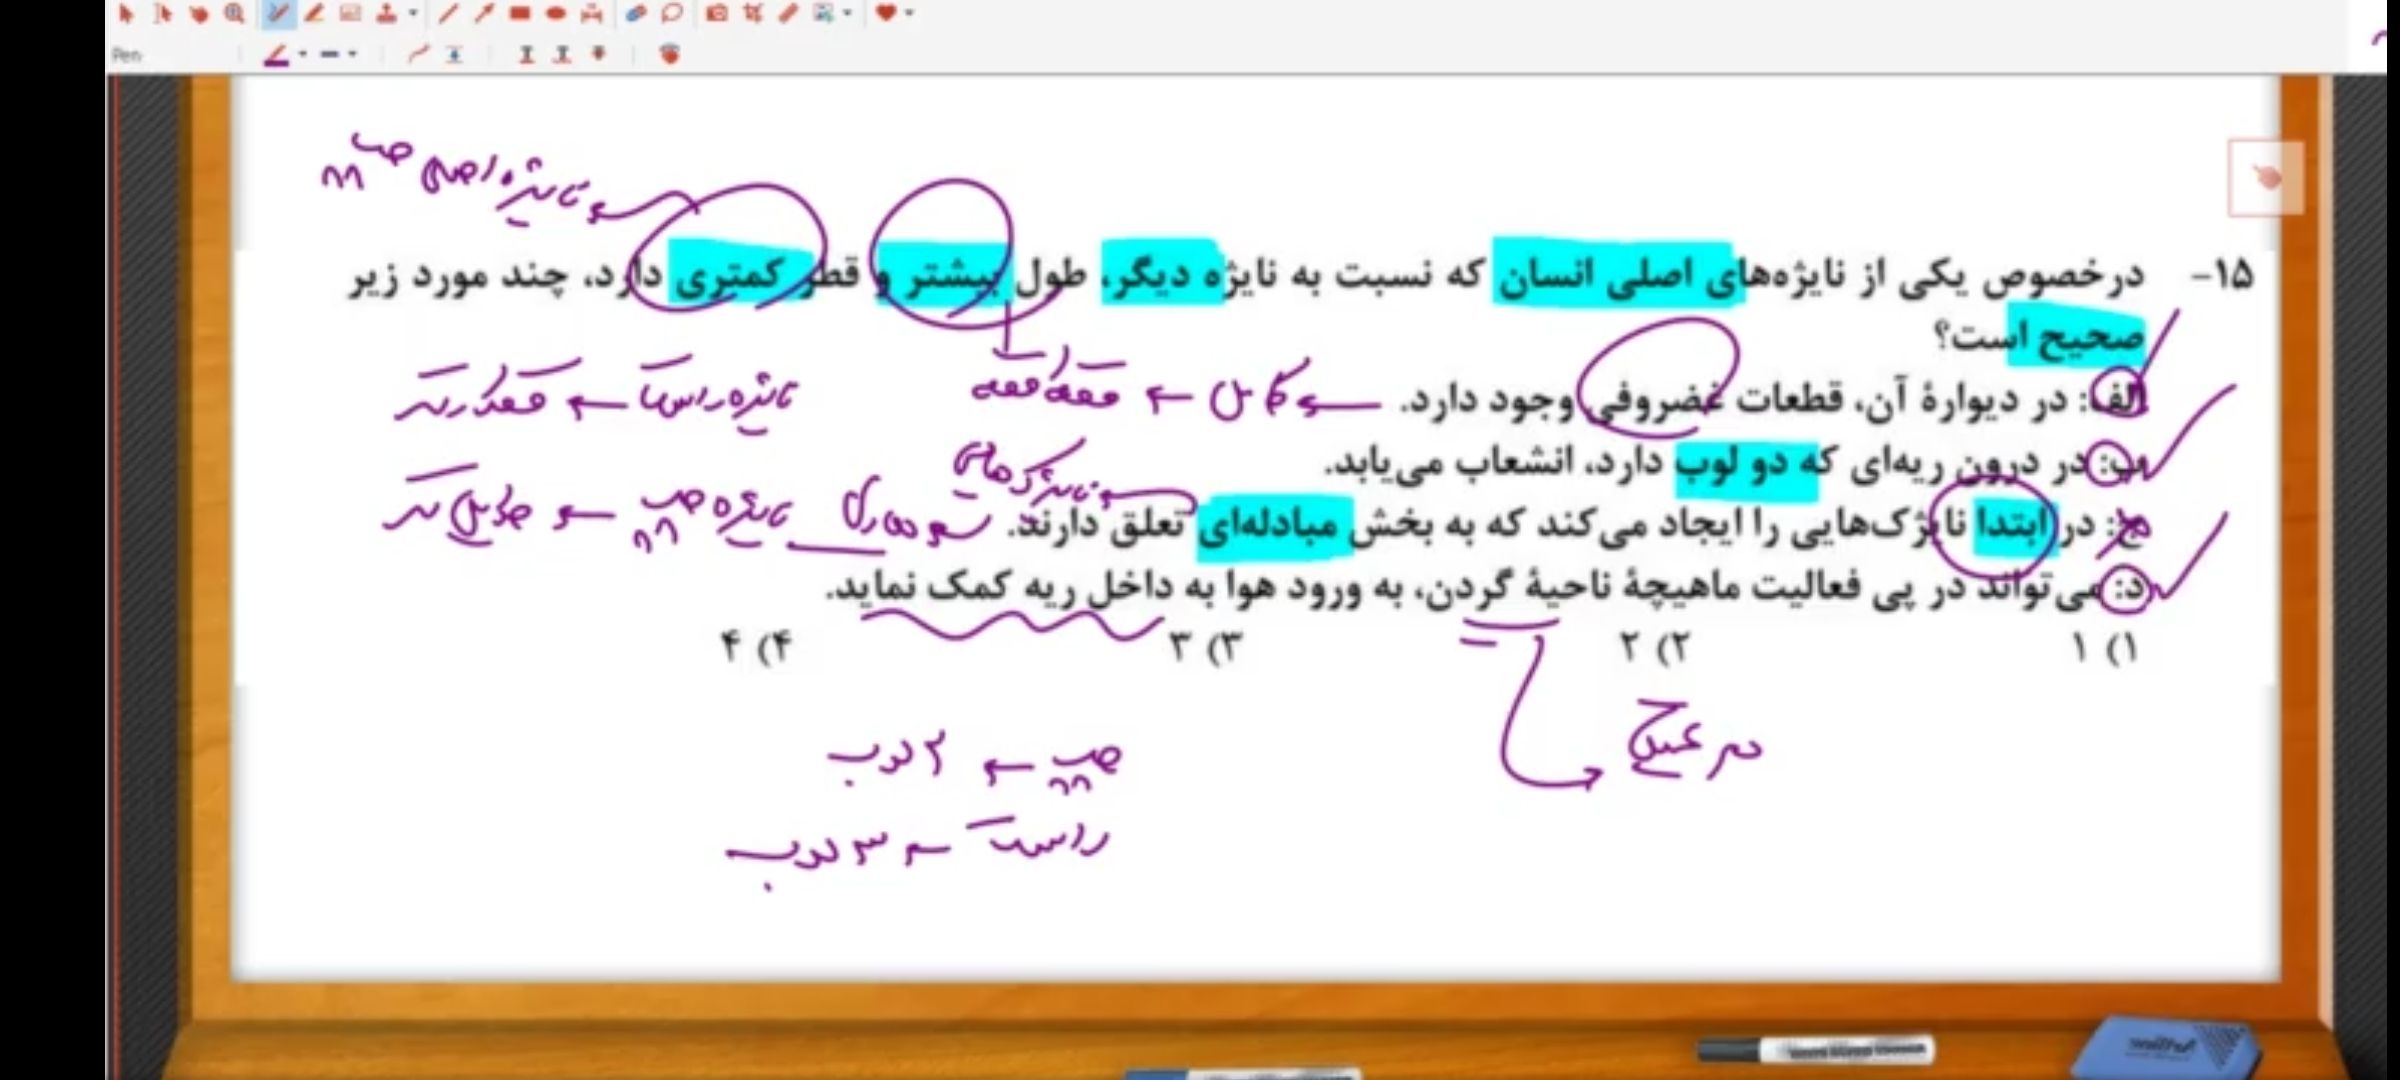 Pen
نایژه اصلی چپ
۱۵- درخصوص یکی از نایژه‌های اصلی انسان که نسبت به نایژه دیگر، طول بیشتر و قطر کمتری دارد، چند مورد زیر
صحیح است؟
الف: در دیوارۀ آن، قطعات غضروفی وجود دارد.
کامل
قطعه قطعه
نایژه راست ← قطورتر
ب: در درون ریه‌ای که دو لوب دارد، انشعاب می‌یابد.
ج: در ابتدا نایژک‌هایی را ایجاد می‌کند که به بخش مبادله‌ای تعلق دارند.
نایژه چپ ← طویل تر
د: می‌تواند در پی فعالیت ماهیچۀ ناحیۀ گردن، به ورود هوا به داخل ریه کمک نماید.
۱) ۱
۲) ۲
۳) ۳
۴) ۴
دم عمیق
چپ ← ۲ لوب
راست ← ۳ لوب